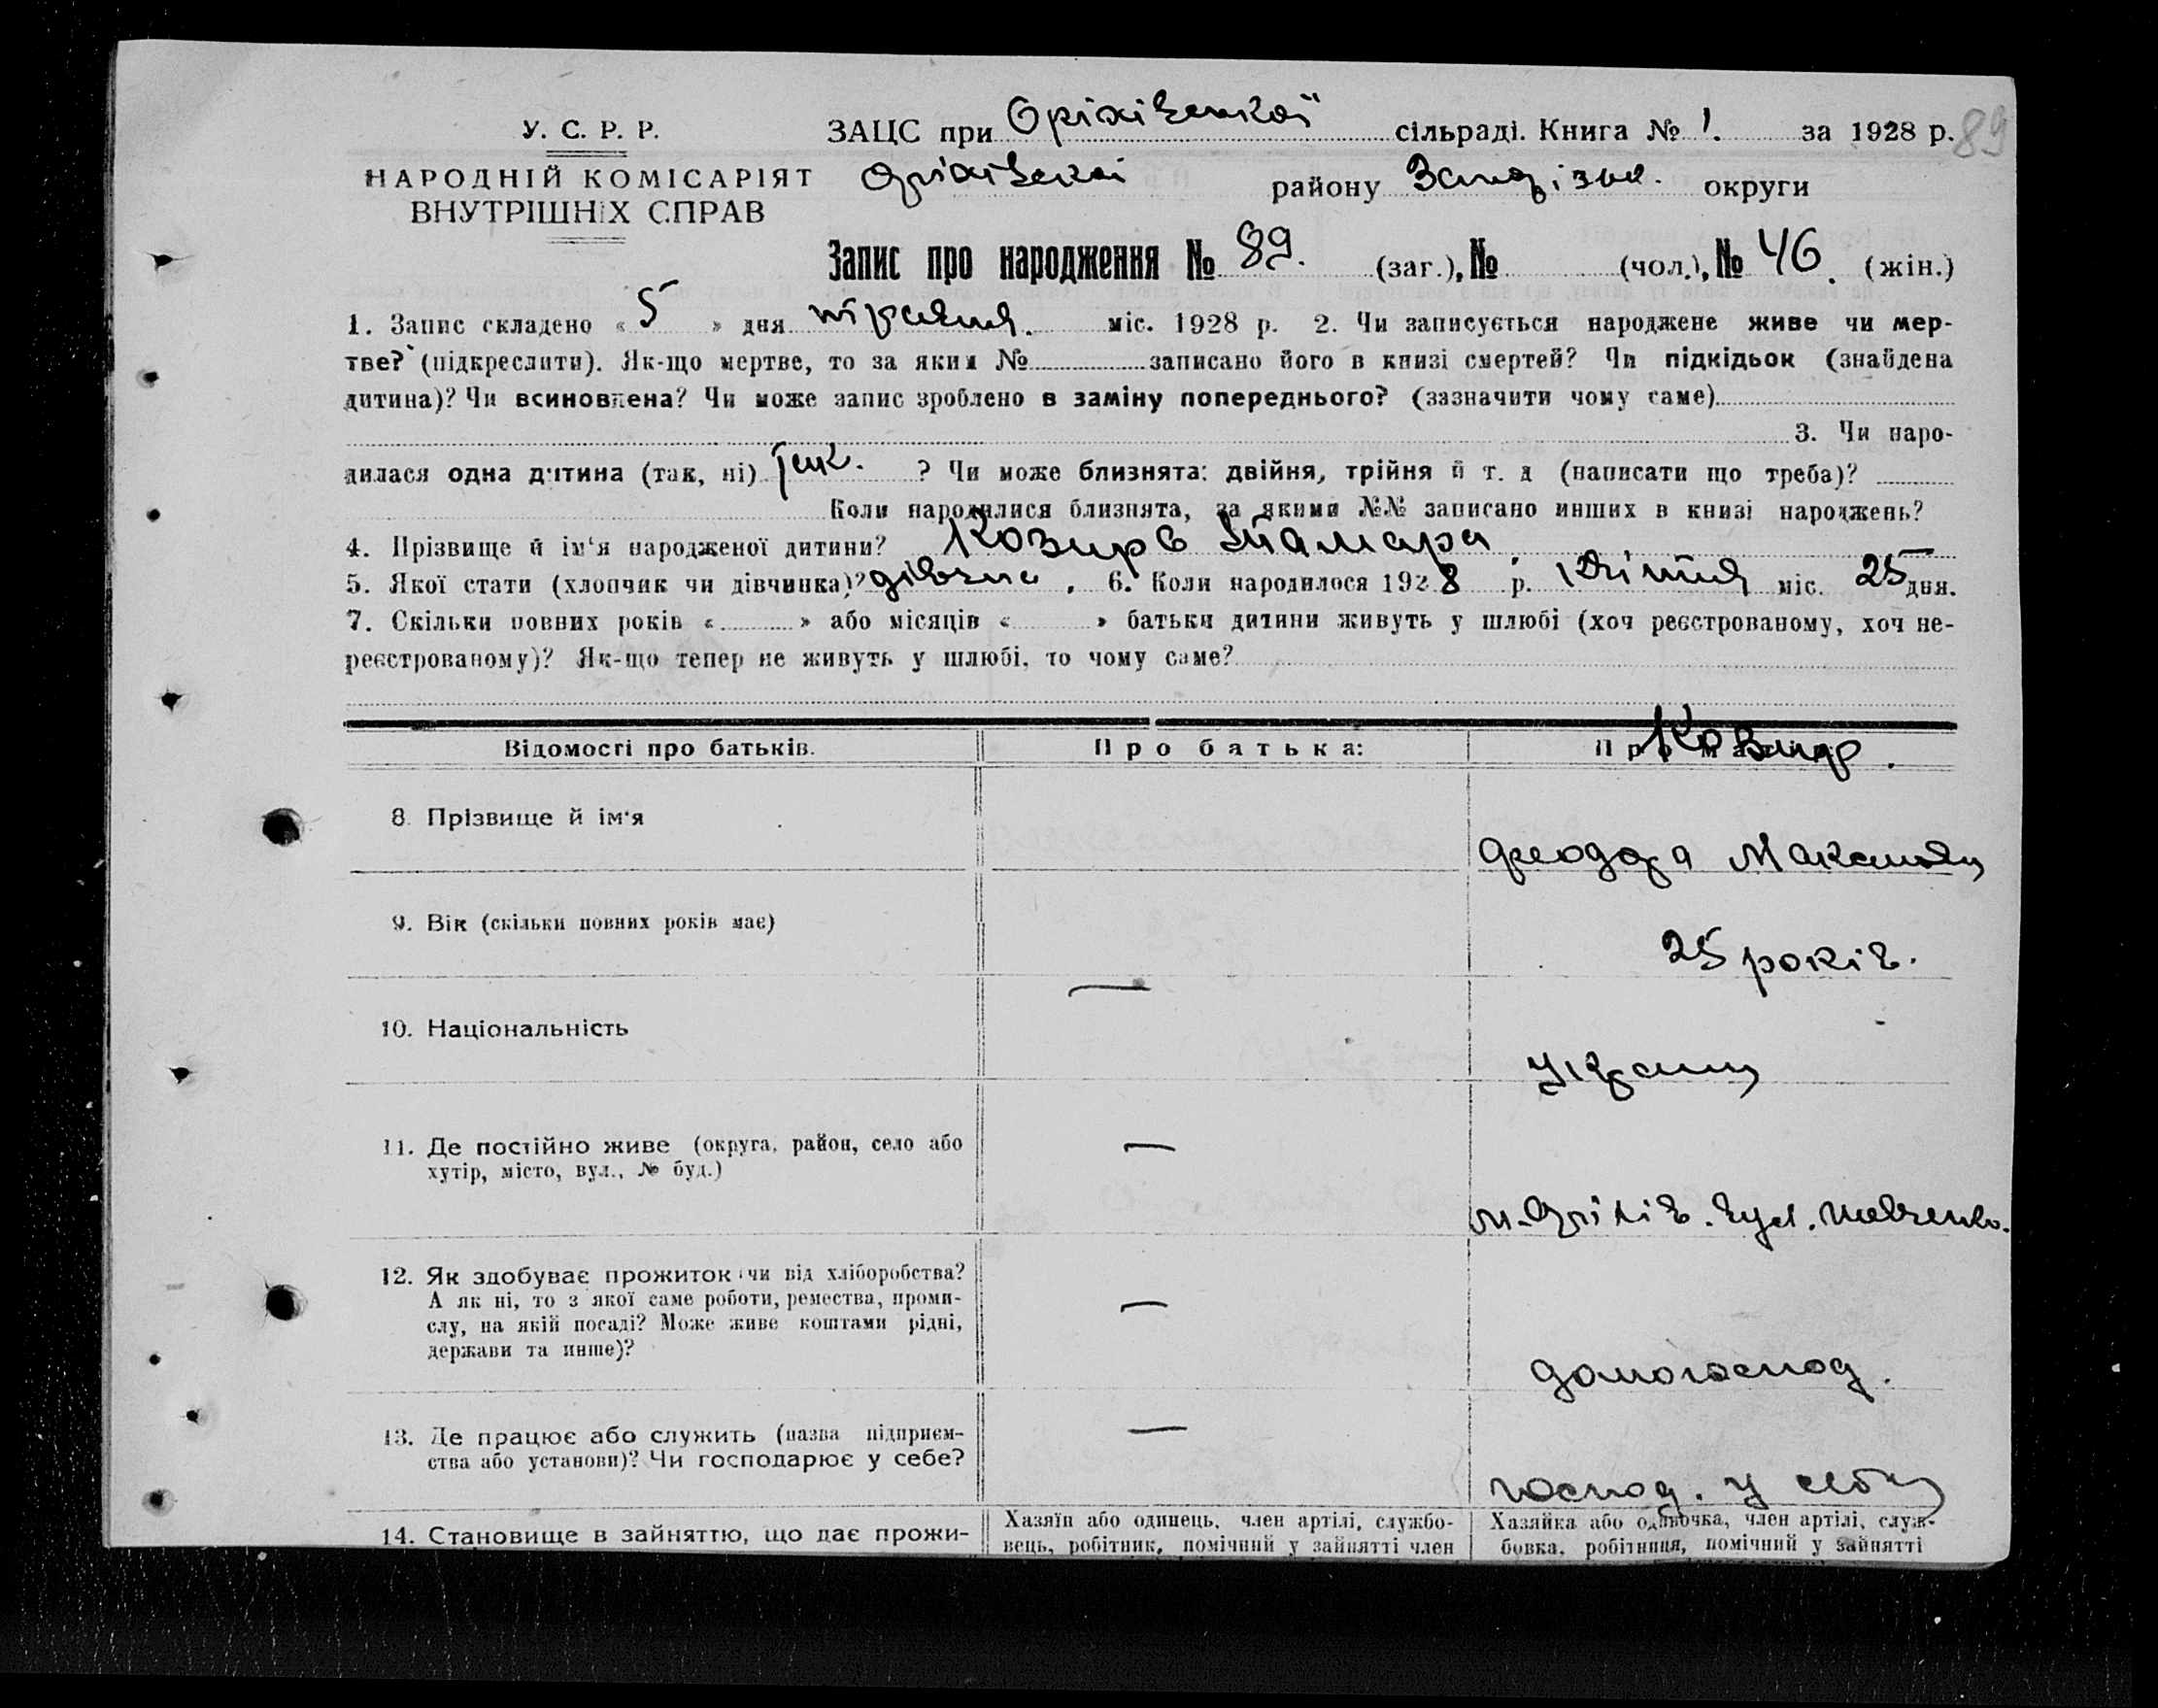 У. С. Р. Р.
НАРОДНІЙ КОМІСАРІЯТ
ВНУТРІШНІХ СПРАВ
ЗАЦС при Оріхівській сільраді. Книга № 1. за 1928 р. 89
Оріхівської району Запоріжж. округи
Запис про народження № 89. (заг.), № (чол.), № 46. (жін.)
1. Запис складено « 5 » дня травня. міс. 1928 р. 2. Чи записується народжене живе чи мер-
тве? (підкреслити). Як-що мертве, то за яким № записано його в книзі смертей? Чи підкідьок (знайдена
дитина)? Чи всиновлена? Чи може запис зроблено в заміну попереднього? (зазначити чому саме)
3. Чи наро-
дилася одна дитина (так, ні) так. ? Чи може близнята: двійня, трійня й т. д (написати що треба)?
Коли народилися близнята, за якими №№ записано инших в книзі народжень?
4. Прізвище й ім'я народженої дитини? Козирь Тамара.
5. Якої стати (хлопчик чи дівчинка)? дівчина. 6. Коли народилося 1928 р. Квітня міс. 25 дня.
7. Скільки повних років « » або місяців « » батьки дитини живуть у шлюбі (хоч реєстрованому, хоч не-
реєстрованому)? Як-що тепер не живуть у шлюбі, то чому саме?
Відомості про батьків. Про батька: Про матір:
Козир.
8. Прізвище й ім'я
Феодора Максим
9. Вік (скільки повних років має)
25 років.
10. Національність —
Україн
11. Де постійно живе (округа, район, село або —
хутір, місто, вул., № буд.)
м. Оріхів. вул. Шевченко.
12. Як здобуває прожиток: чи від хліборобства? —
А як ні, то з якої саме роботи, ремества, проми-
слу, на якій посаді? Може живе коштами рідні,
держави та инше)?
домогоспод.
13. Де працює або служить (назва підприєм- —
ства або установи)? Чи господарює у себе?
госпoд. у себе
14. Становище в зайняттю, що дає прожи-
Хазяїн або одинець, член артілі, службо-
вець, робітник, помічний у зайнятті член
Хазяйка або одиночка, член артілі, служ-
бовка, робітниця, помічний у зайнятті